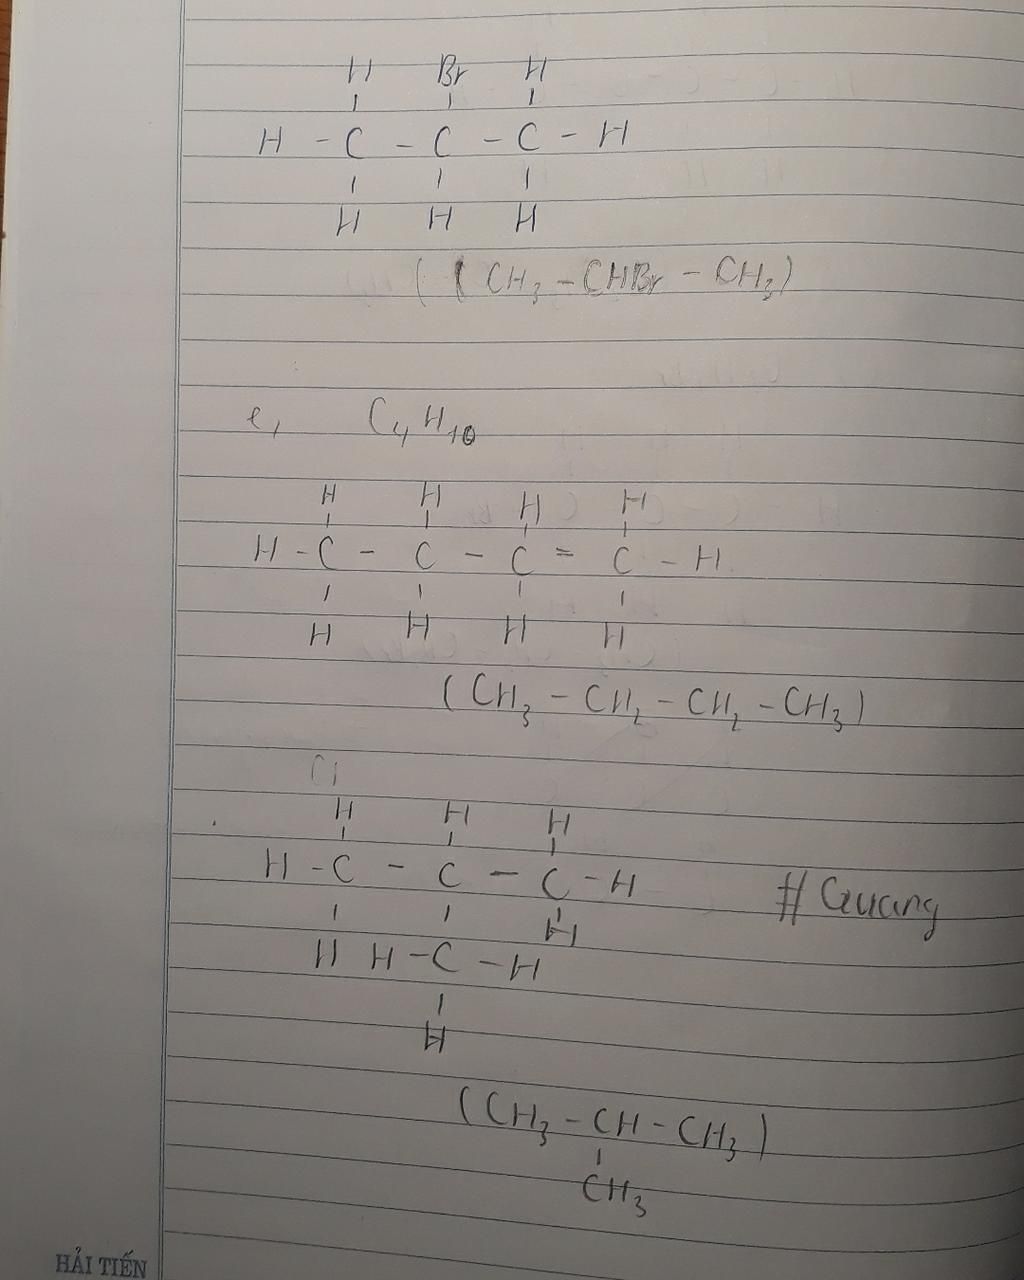 H Br H
H - C - C - C - H
H H H
( ( CH₃ - CHBr - CH₃ )
e, C₄H₁₀
H H H H
H - C - C - C = C - H
H H H H
( CH₃ - CH₂ - CH₂ - CH₃ )
Cl
H H H
H - C - C - C - H # Quang
H
H H - C - H
H
( CH₃ - CH - CH₃ )
CH₃
HẢI TIẾN